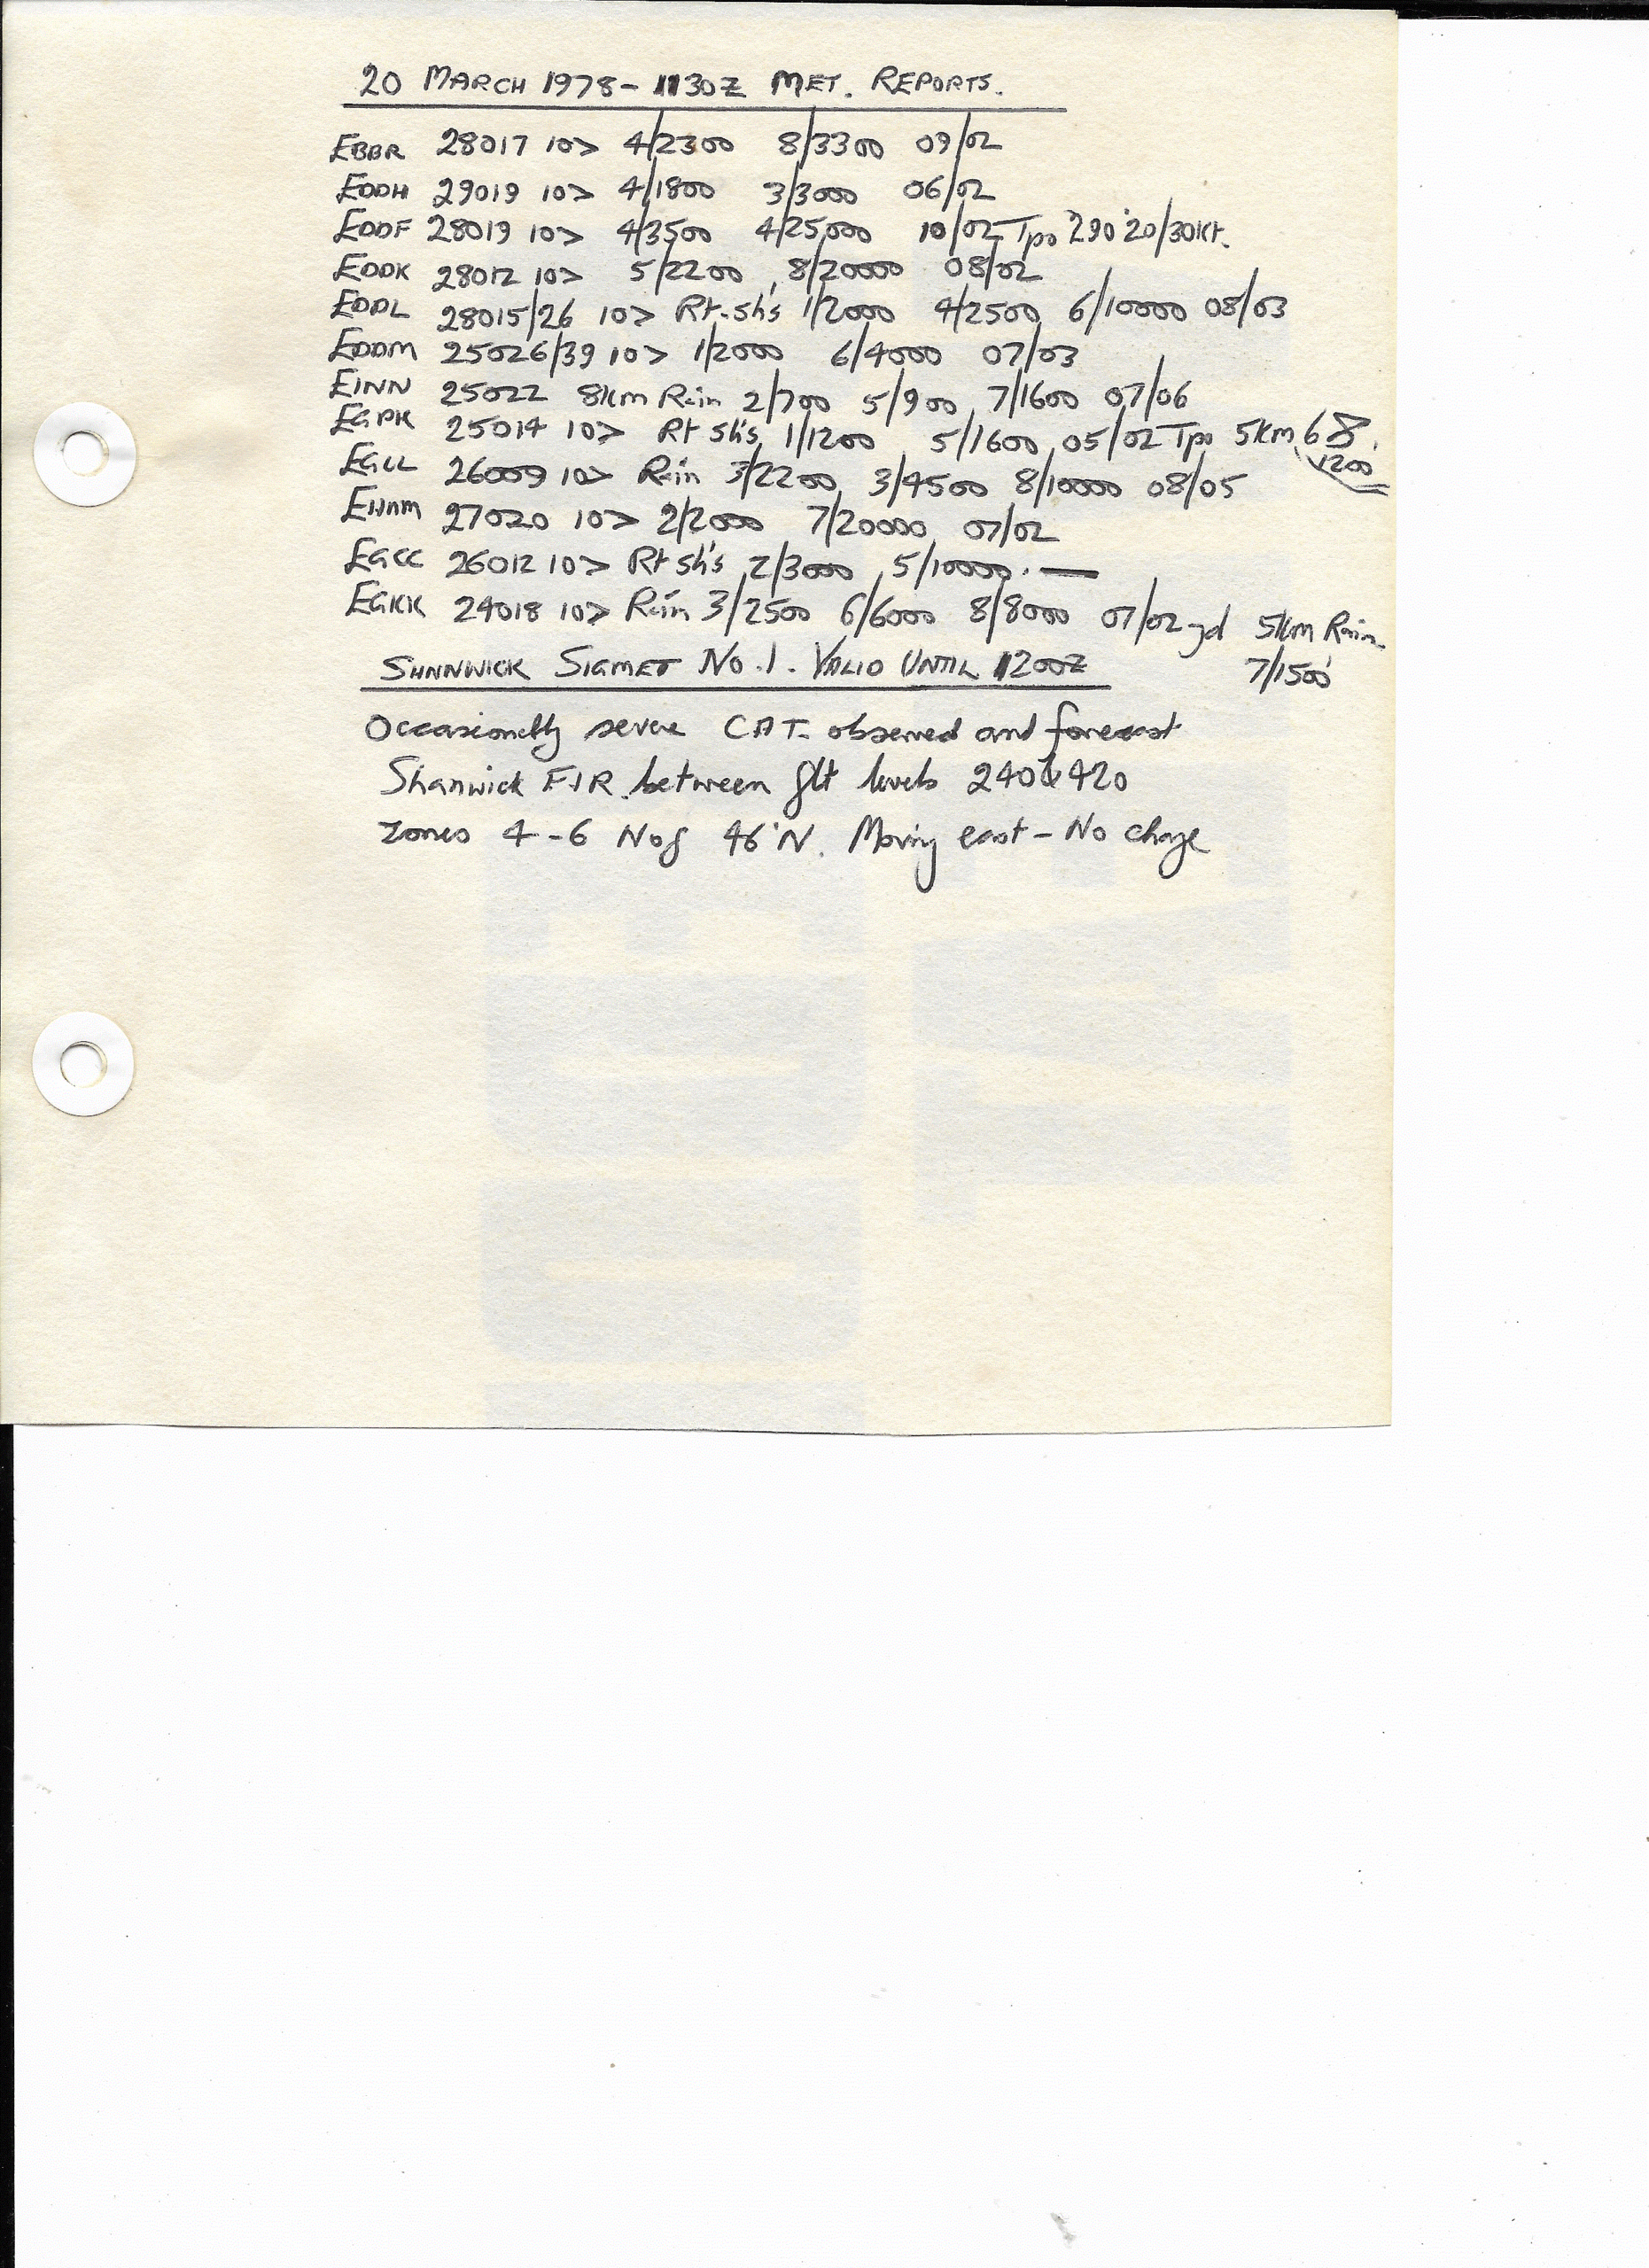 20 MARCH 1978 - 1130Z MET. REPORTS.
EBBR 28017 10> 4/2300 8/3300 09/02
EDDH 29019 10> 4/1800 3/3000 06/02
EDDF 28019 10> 4/3500 4/25,000 10/02 Tpo 290°20/30Kt.
EDDK 28012 10> 5/2200 8/20000 08/02
EDDL 28015/26 10> Rt. Sh's 1/2000 4/2500 6/10000 08/03
EDDM 25026/39 10> 1/2000 6/4000 07/03
EINN 25022 8km Rain 2/700 5/900 7/1600 07/06
EGPK 25014 10> Rt Sh's 1/1200 5/1600 05/02 Tpo 5km 68
1200
EGLL 26009 10> Rain 3/2200 3/4500 8/10000 08/05
EHAM 27020 10> 2/2000 7/20000 07/02
EGCC 26012 10> Rt Sh's 2/3000 5/10000. —
EGKK 24018 10> Rain 3/2500 6/6000 8/8000 07/02 5km Rain.
7/1500'
SHANWICK SIGMET No. 1. VALID UNTIL 1200Z
Occasionally severe CAT. observed and forecast
Shanwick FIR. between flt levels 240 & 420
Zones 4-6 N of 46°N. Moving east - No change